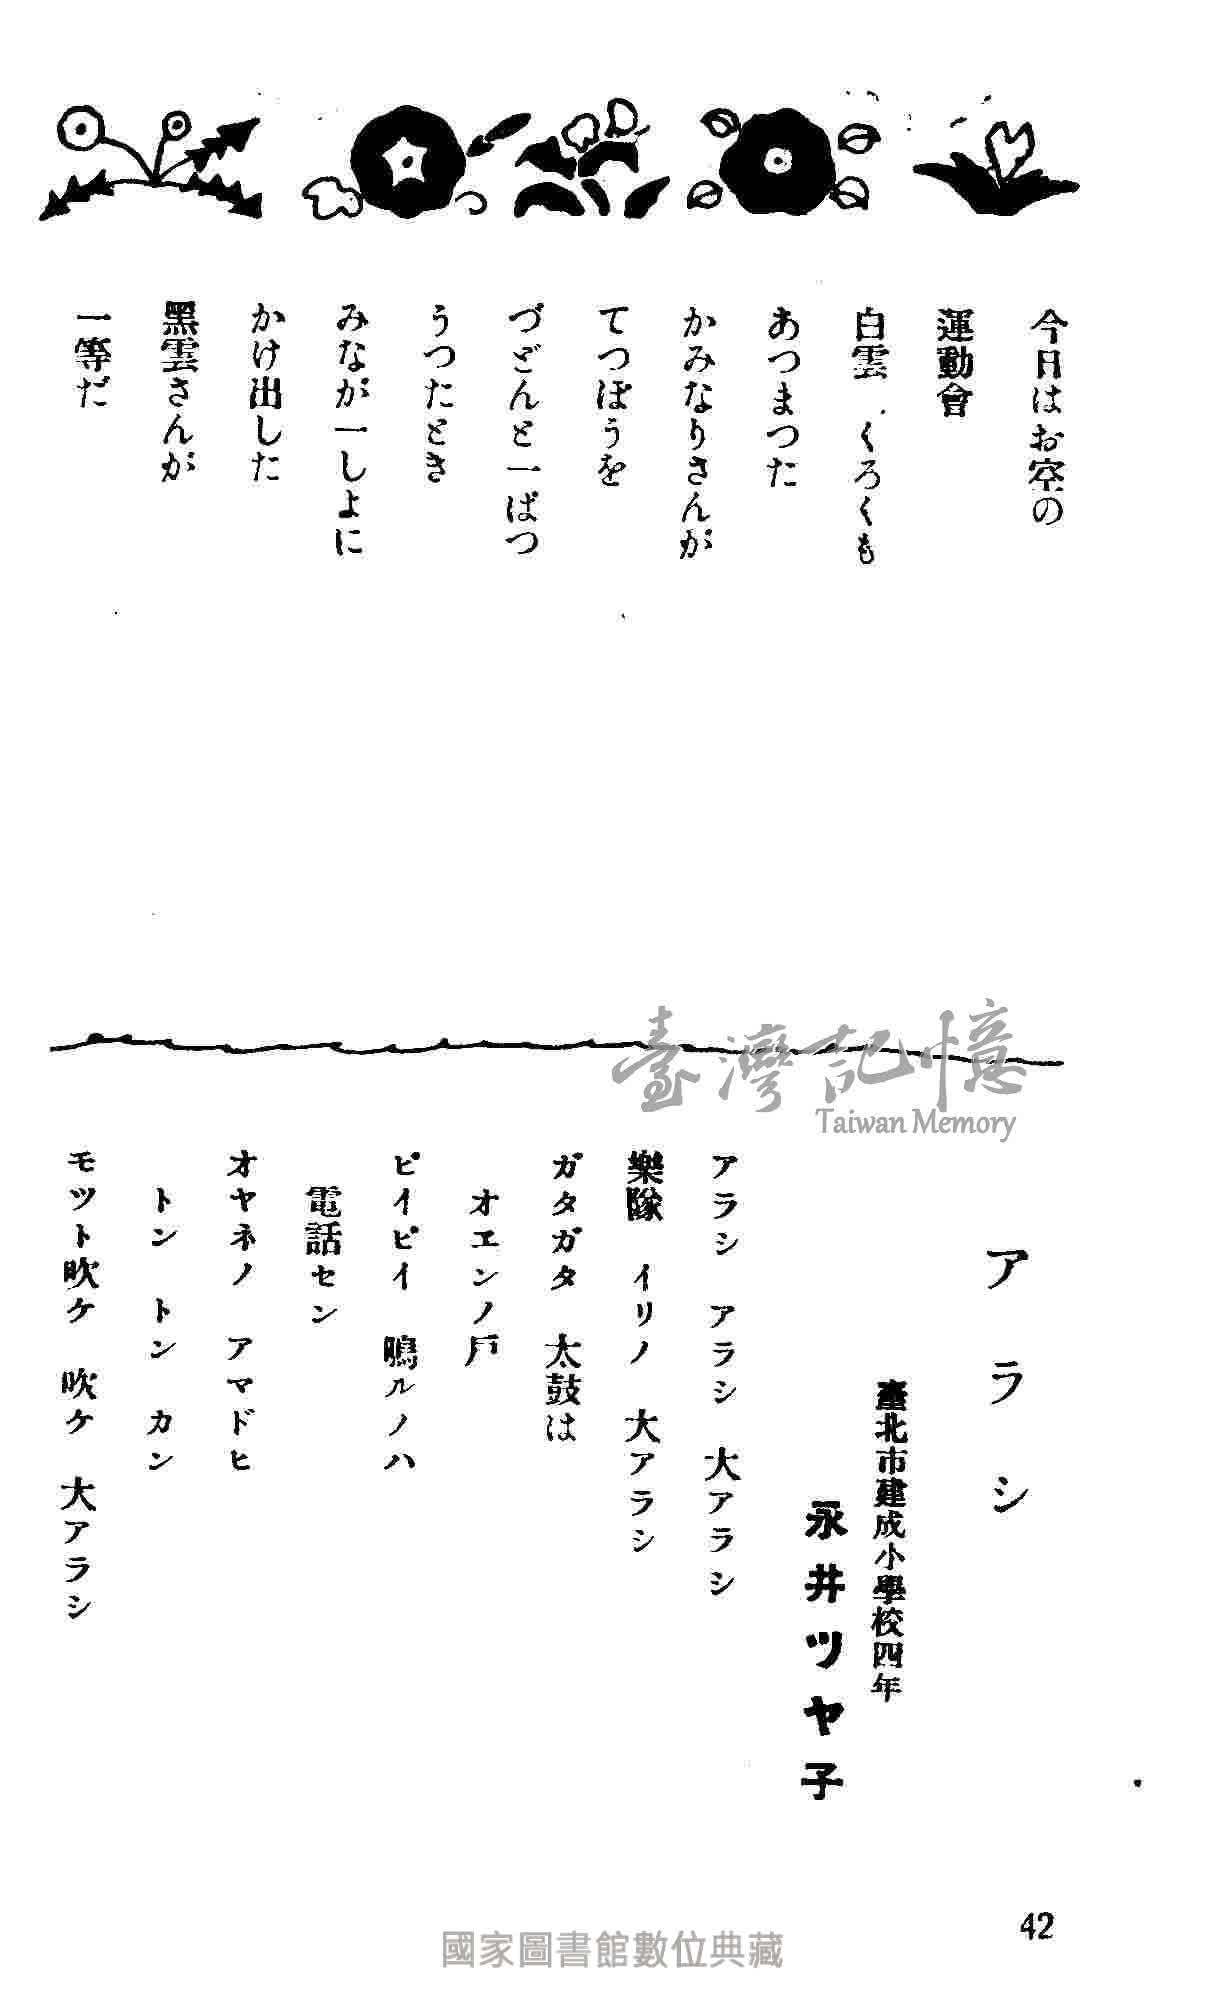 今日はお空の
運動會
白雲 くろくも
あつまつた
かみなりさんが
てつぽうを
づどんと一ぱつ
うつたとき
みなが一しよに
かけ出した
黑雲さんが
一等だ
アラシ
臺北市建成小學校四年
永井ツヤ子
アラシ アラシ 大アラシ
樂隊 イリノ 大アラシ
ガタガタ 太鼓は
オエンノ戸
ピイピイ 鳴ルノハ
電話セン
オヤネノ アマドヒ
トン トン カン
モツト吹ケ 吹ケ 大アラシ
42
臺灣記憶
Taiwan Memory
國家圖書館數位典藏